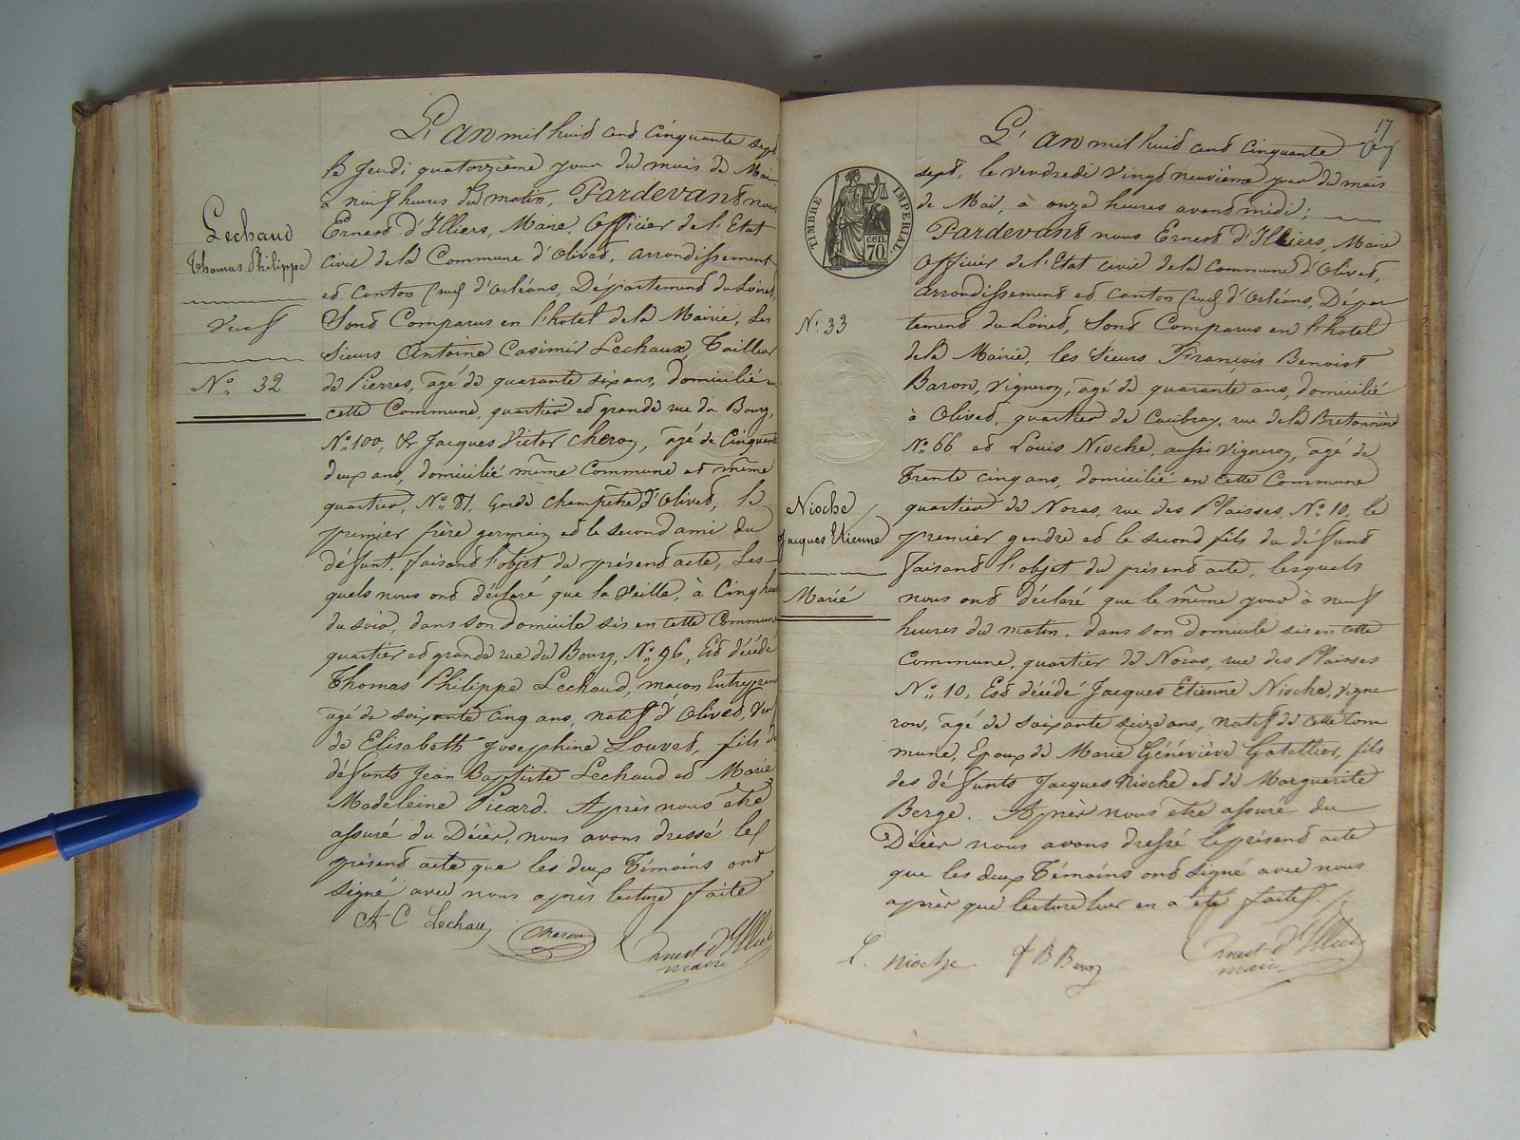 Lechaud
Thomas Philippe
Veuf
N° 32
L'an mil huit cent cinquante sept
le Jeudi quatorzième jour du mois de Mai
à neuf heures du matin, Pardevant nous
Ernest d'Illiers, Maire, Officier de l'Etat
civil de la Commune d'Olivet, arrondissement
et canton Sud d'Orléans, Département du Loiret,
Sont Comparus en l'hotel de la Mairie, Les
Sieurs Antoine Casimir Lechaux, Tailleur
de Pierres, agé de quarante six ans, domicilié en
cette Commune, quartier et grande rue du Bourg,
N° 100, & Jacques Victor Cheron, agé de Cinquante
deux ans, domicilié même Commune et même
quartier, N° 81, Garde Champêtre d'Olivet, le
premier frère germain et le second ami du
défunt, faisant l'objet du présent acte, Les-
quels nous ont déclaré que la veille, à Cinq heures
du soir, dans son domicile sis en cette Commune
quartier et grande rue du Bourg, N° 96, Est décédé
Thomas Philippe Lechaud, maçon Entrepreneur
agé de soixante cinq ans, natif d'Olivet, Veuf
de Elisabeth Josephine Louvet, fils de
défunts Jean Baptiste Lechaud et Marie
Madeleine Picard. Après nous être
assuré du Décès, nous avons dressé le
présent acte que les deux Témoins ont
signé avec nous après lecture faite
A C Lechaux
Cheron
Ernest d'Illiers
maire
17
TIMBRE IMPERIAL
70 CEN.
N° 33
Nioche
Jacques Etienne
Marié
L'an mil huit cent cinquante
sept, le vendredi vingt neuvième jour du mois
de Mai, à onze heures avant midi;
Pardevant nous Ernest d'Illiers, Maire
Officier de l'Etat civil de la Commune d'Olivet,
arrondissement et canton Sud d'Orléans, Dépar
tement du Loiret, Sont Comparus en l'hotel
de la Mairie, les Sieurs François Benoist
Baron, vigneron, agé de quarante ans, domicilié
à Olivet, quartier de Caubray, rue de la Bretonnière
N° 66 et Louis Nioche, aussi vigneron, agé de
Trente cinq ans, domicilié en cette Commune
quartier de Noras, rue des Plaisses, N° 10, le
premier gendre et le second fils du défunt
faisant l'objet du présent acte, lesquels
nous ont déclaré que le même jour à neuf
heures du matin, dans son domicile sis en cette
Commune, quartier de Noras, rue des Plaisses
N° 10, Est décédé Jacques Etienne Nioche, vigne
ron, agé de soixante seize ans, natif de cette Com
mune, Epoux de Marie Géneviève Gatellier, fils
des défunts Jacques Nioche et de Marguerite
Berge. Après nous être assuré du
Décès nous avons dressé le présent acte
que les deux Témoins ont signé avec nous
après que lecture leur en a été faite
L. nioche
f B Baron
Ernest d'Illiers
maire